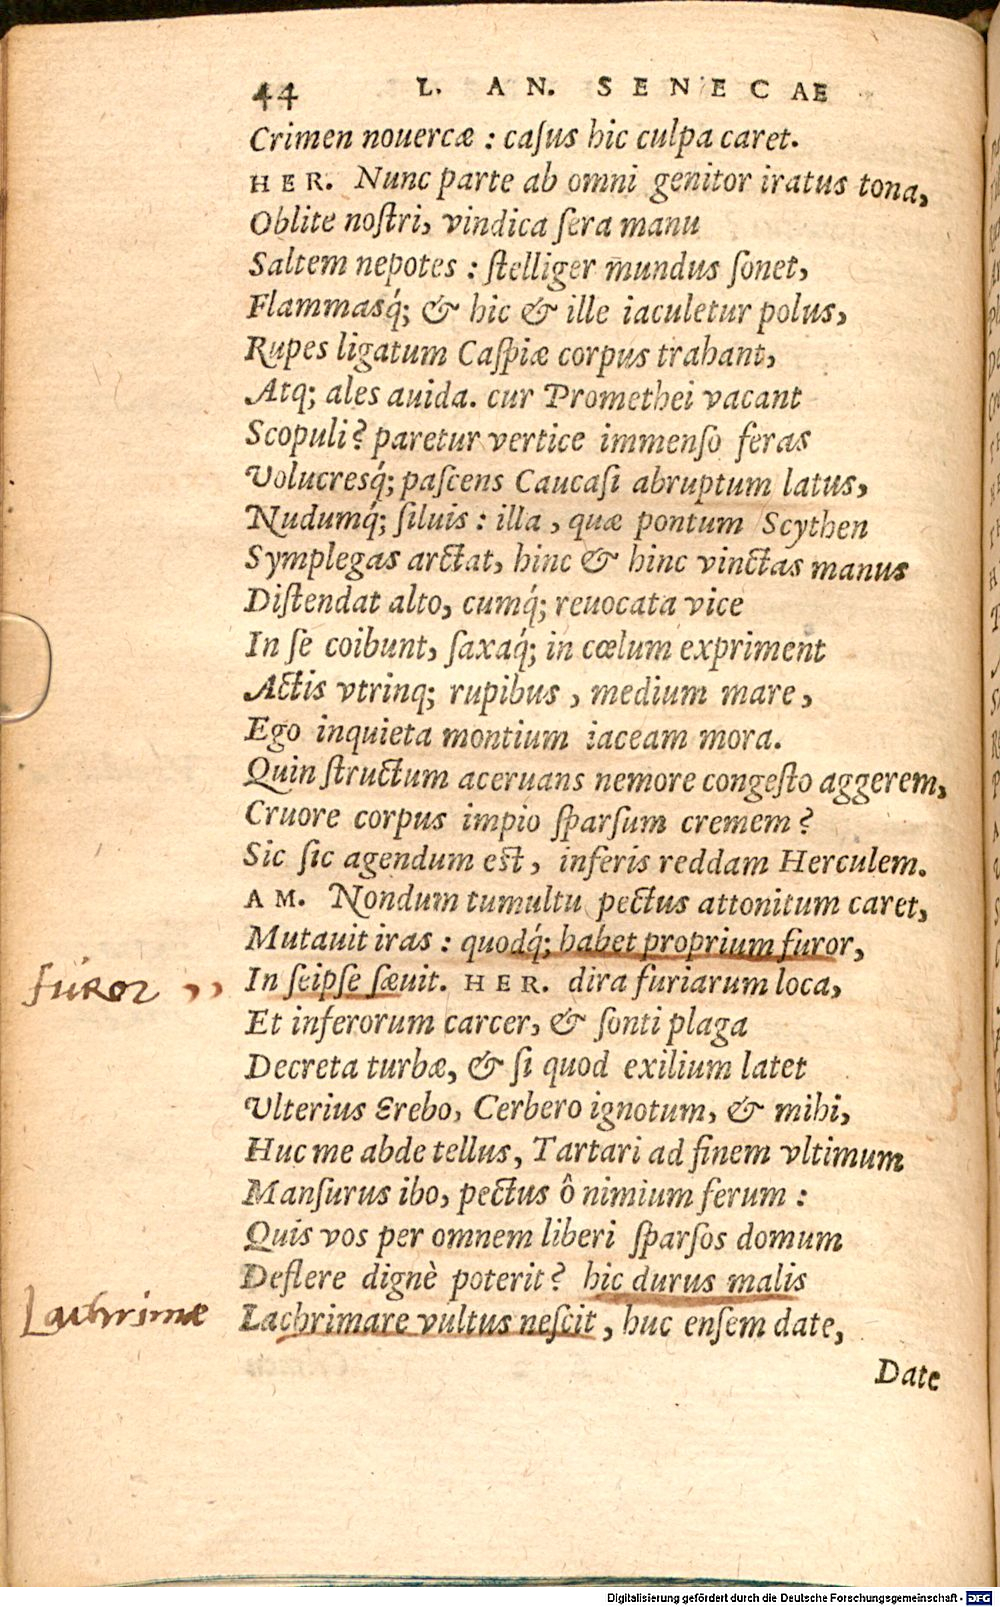 44 L. AN. SENECAE
Crimen nouercæ : caſus hic culpa caret.
HER. Nunc parte ab omni genitor iratus tona,
Oblite noſtri, vindica ſera manu
Saltem nepotes : ſtelliger mundus ſonet,
Flammasq́; & hic & ille iaculetur polus,
Rupes ligatum Caſpiæ corpus trahant,
Atq; ales auida. cur Promethei vacant
Scopuli? paretur vertice immenſo feras
Volucresq́; paſcens Caucaſi abruptum latus,
Nudumq́; ſiluis : illa, quæ pontum Scythen
Symplegas arctat, hinc & hinc vinctas manus
Diſtendat alto, cumq́; reuocata vice
In ſe coibunt, ſaxaq́; in cœlum expriment
Actis vtrinq; rupibus, medium mare,
Ego inquieta montium iaceam mora.
Quin ſtructum aceruans nemore congeſto aggerem,
Cruore corpus impio ſparſum cremem?
Sic ſic agendum eſt, inferis reddam Herculem.
AM. Nondum tumultu pectus attonitum caret,
Mutauit iras : quodq́; habet proprium furor,
furor ,, In ſeipſe ſæuit. HER. dira furiarum loca,
Et inferorum carcer, & ſonti plaga
Decreta turbæ, & ſi quod exilium latet
Vlterius Erebo, Cerbero ignotum, & mihi,
Huc me abde tellus, Tartari ad finem vltimum
Manſurus ibo, pectus ô nimium ferum :
Quis vos per omnem liberi ſparſos domum
Deflere dignè poterit? hic durus malis
Lachrimæ Lachrimare vultus neſcit, huc enſem date,
Date
Digitalisierung gefördert durch die Deutsche Forschungsgemeinschaft - DFG